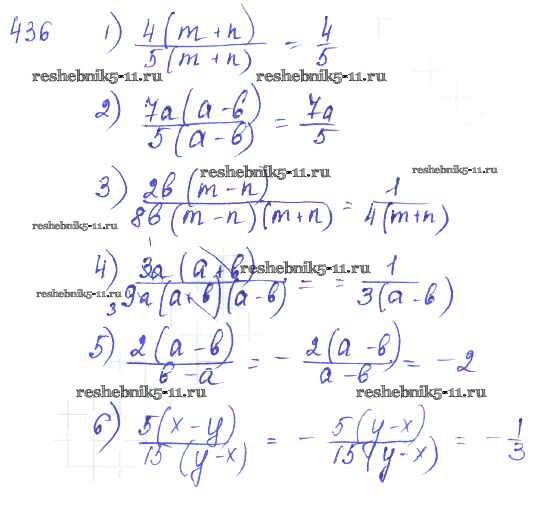 436 1) 4(m+n)/5(m+n) = 4/5
reshebnik5-11.ru reshebnik5-11.ru
2) 7a(a-b)/5(a-b) = 7a/5
reshebnik5-11.ru reshebnik5-11.ru
3) 2b(m-n)/8b(m-n)(m+n) = 1/4(m+n)
reshebnik5-11.ru
reshebnik5-11.ru
4) 3a(a+b)/9a(a+b)(a-b) = = 1/3(a-b)
1
3
reshebnik5-11.ru reshebnik5-11.ru
5) 2(a-b)/b-a = - 2(a-b)/a-b = -2
reshebnik5-11.ru reshebnik5-11.ru
6) 5(x-y)/15(y-x) = - 5(y-x)/15(y-x) = - 1/3
reshebnik5-11.ru